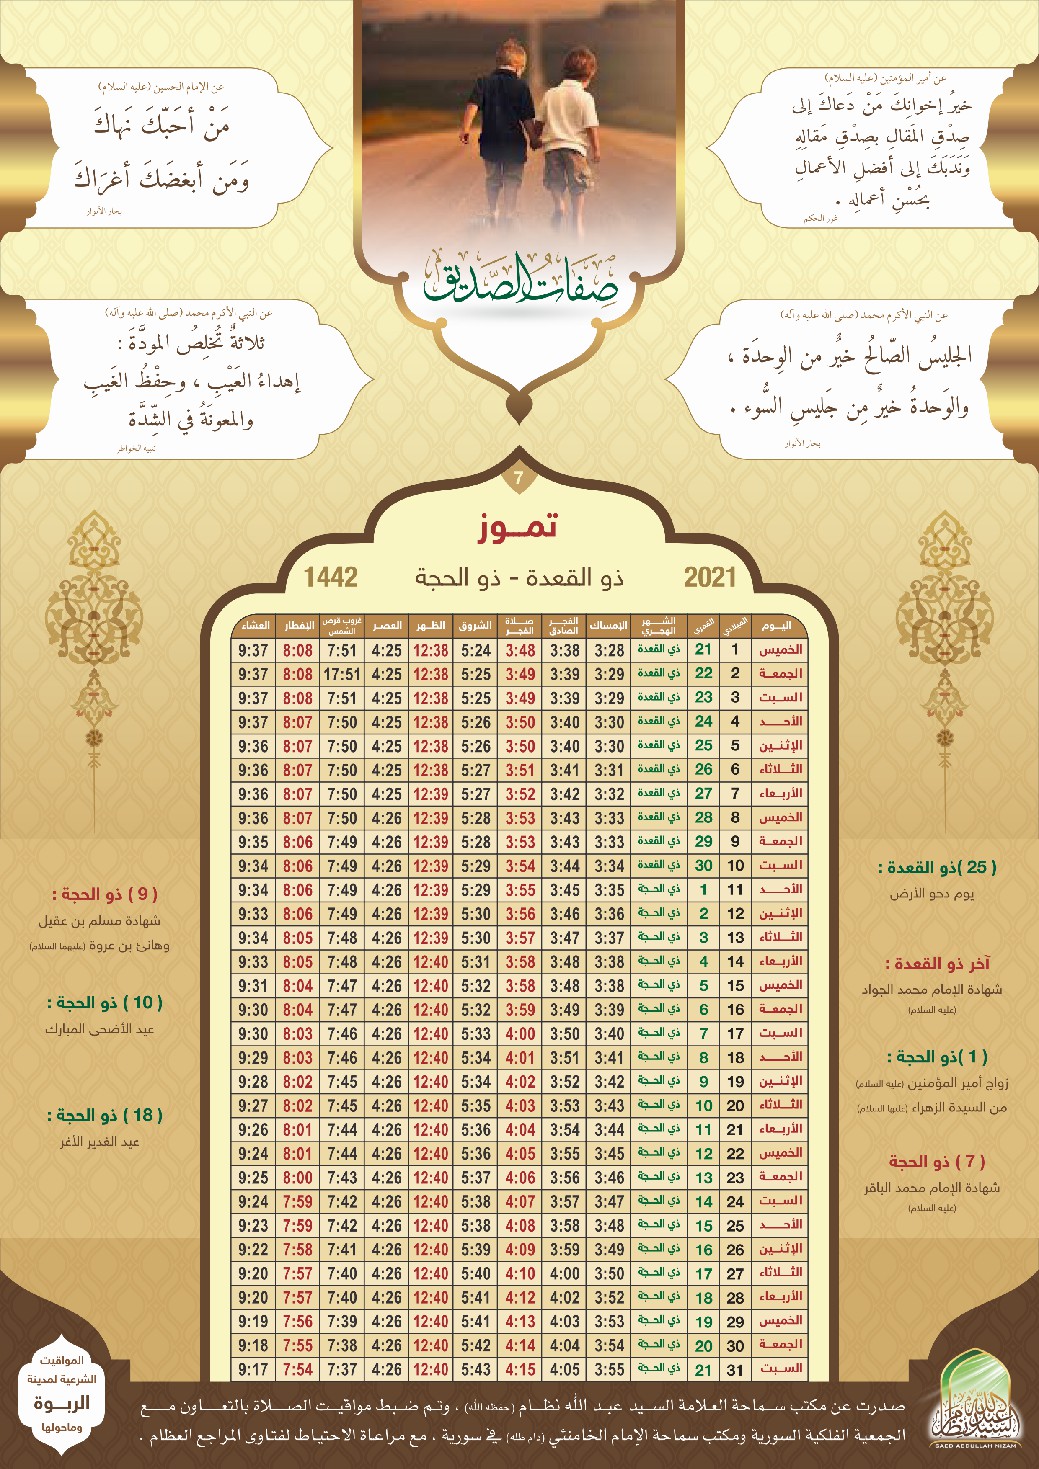 عن أمير المؤمنين (عليه السلام)
خيرُ إخوانِكَ مَنْ دَعاكَ إلى
صِدْقِ المَقالِ بصِدْقِ مَقالِهِ
وَنَدَبَكَ إلى أفضلِ الأعمالِ
بحُسْنِ أعمالِه .
غرر الحكم
عن الإمام الحسين (عليه السلام)
مَنْ أحَبّكَ نَهاكَ
وَمَن أبغضَكَ أغرَاكَ
بحار الأنوار
صفات الصديق
عن النبي الأكرم محمد (صلى الله عليه وآله)
الجليسُ الصّالحُ خيرٌ من الوِحدَة ،
والوَحدةُ خيرٌ مِن جَليسِ السُّوء .
بحار الأنوار
عن النبي الأكرم محمد (صلى الله عليه وآله)
ثلاثةٌ تُخلِصُ المودَّةَ :
إهداءُ العَيْبِ ، وحِفْظُ الغَيبِ
والمعونَةُ في الشِّدَّة
تنبيه الخواطر
7
تمـــوز
2021 ذو القعدة - ذو الحجة 1442
اليـوم الميلادي القمري الشـــهر الهجري الإمساك الفجـــر الصادق صـــلاة الفجــر الشروق الظـهر العصـر غروب قرص الشمس الإفطار العشاء
الخميس 1 21 ذي القعدة 3:28 3:38 3:48 5:24 12:38 4:25 7:51 8:08 9:37
الجمعــة 2 22 ذي القعدة 3:29 3:39 3:49 5:25 12:38 4:25 17:51 8:08 9:37
السـبت 3 23 ذي القعدة 3:29 3:39 3:49 5:25 12:38 4:25 7:51 8:08 9:37
الأحــد 4 24 ذي القعدة 3:30 3:40 3:50 5:26 12:38 4:25 7:50 8:07 9:37
الإثنـين 5 25 ذي القعدة 3:30 3:40 3:50 5:26 12:38 4:25 7:50 8:07 9:36
الثــلاثاء 6 26 ذي القعدة 3:31 3:41 3:51 5:27 12:38 4:25 7:50 8:07 9:36
الأربـعاء 7 27 ذي القعدة 3:32 3:42 3:52 5:27 12:39 4:25 7:50 8:07 9:36
الخميس 8 28 ذي القعدة 3:33 3:43 3:53 5:28 12:39 4:26 7:50 8:07 9:36
الجمعــة 9 29 ذي القعدة 3:33 3:43 3:53 5:28 12:39 4:26 7:49 8:06 9:35
السـبت 10 30 ذي القعدة 3:34 3:44 3:54 5:29 12:39 4:26 7:49 8:06 9:34
الأحــد 11 1 ذي الحـجة 3:35 3:45 3:55 5:29 12:39 4:26 7:49 8:06 9:34
الإثنـين 12 2 ذي الحـجة 3:36 3:46 3:56 5:30 12:39 4:26 7:49 8:06 9:33
الثــلاثاء 13 3 ذي الحـجة 3:37 3:47 3:57 5:30 12:39 4:26 7:48 8:05 9:34
الأربـعاء 14 4 ذي الحـجة 3:38 3:48 3:58 5:31 12:40 4:26 7:48 8:05 9:33
الخميس 15 5 ذي الحـجة 3:38 3:48 3:58 5:32 12:40 4:26 7:47 8:04 9:31
الجمعــة 16 6 ذي الحـجة 3:39 3:49 3:59 5:32 12:40 4:26 7:47 8:04 9:30
السـبت 17 7 ذي الحـجة 3:40 3:50 4:00 5:33 12:40 4:26 7:46 8:03 9:30
الأحــد 18 8 ذي الحـجة 3:41 3:51 4:01 5:34 12:40 4:26 7:46 8:03 9:29
الإثنـين 19 9 ذي الحـجة 3:42 3:52 4:02 5:34 12:40 4:26 7:45 8:02 9:28
الثــلاثاء 20 10 ذي الحـجة 3:43 3:53 4:03 5:35 12:40 4:26 7:45 8:02 9:27
الأربـعاء 21 11 ذي الحـجة 3:44 3:54 4:04 5:36 12:40 4:26 7:44 8:01 9:26
الخميس 22 12 ذي الحـجة 3:45 3:55 4:05 5:36 12:40 4:26 7:44 8:01 9:24
الجمعــة 23 13 ذي الحـجة 3:46 3:56 4:06 5:37 12:40 4:26 7:43 8:00 9:25
السـبت 24 14 ذي الحـجة 3:47 3:57 4:07 5:38 12:40 4:26 7:42 7:59 9:24
الأحــد 25 15 ذي الحـجة 3:48 3:58 4:08 5:38 12:40 4:26 7:42 7:59 9:23
الإثنـين 26 16 ذي الحـجة 3:49 3:59 4:09 5:39 12:40 4:26 7:41 7:58 9:22
الثــلاثاء 27 17 ذي الحـجة 3:50 4:00 4:10 5:40 12:40 4:26 7:40 7:57 9:20
الأربـعاء 28 18 ذي الحـجة 3:52 4:02 4:12 5:41 12:40 4:26 7:40 7:57 9:20
الخميس 29 19 ذي الحـجة 3:53 4:03 4:13 5:41 12:40 4:26 7:39 7:56 9:19
الجمعــة 30 20 ذي الحـجة 3:54 4:04 4:14 5:42 12:40 4:26 7:38 7:55 9:18
السـبت 31 21 ذي الحـجة 3:55 4:05 4:15 5:43 12:40 4:26 7:37 7:54 9:17
( 25 )ذو القعدة :
يوم دحو الأرض
آخر ذو القعدة :
شهادة الإمام محمد الجواد
(عليه السلام)
( 1 )ذو الحجة :
زواج أمير المؤمنين (عليه السلام)
من السيدة الزهراء (عليها السلام)
( 7 ) ذو الحجة
شهادة الإمام محمد الباقر
(عليه السلام)
( 9 ) ذو الحجة :
شهادة مسلم بن عقيل
وهانئ بن عروة (عليهما السلام)
( 10 ) ذو الحجة :
عيد الأضحى المبارك
( 18 ) ذو الحجة :
عيد الغدير الأغر
المواقيت
الشرعية لمدينة
الربـــوة
وماحولها
صدرت عن مكتب سماحة العلامة السيد عبد الله نظـام (حفظه الله) ، وتـم ضبـط مواقيـت الصـلاة بالتعــاون مــع
الجمعية الفلكية السورية ومكتب سماحة الإمام الخامنئي (دام ظله) في سورية ، مع مراعاة الاحتياط لفتاوى المراجع العظام .
السيد عبدالله نظام
SAED ABDULLAH NIZAM